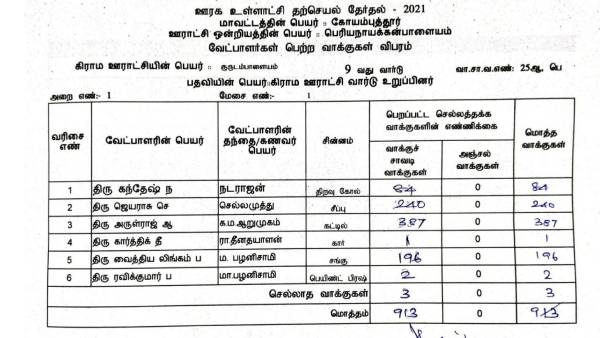 ஊரக உள்ளாட்சி தற்செயல் தேர்தல் - 2021
மாவட்டத்தின் பெயர் :: கோயம்புத்தூர்
ஊராட்சி ஒன்றியத்தின் பெயர் :: பெரியநாயக்கன்பாளையம்
வேட்பாளர்கள் பெற்ற வாக்குகள் விபரம்
கிராம ஊராட்சியின் பெயர் :: குருடம்பாளையம் 9 வது வார்டு வா.சா.வ.எண்: 25ஆ, பெ
பதவியின் பெயர்::கிராம ஊராட்சி வார்டு உறுப்பினர்
அறை எண்:- 1 மேசை எண்:- 1
வரிசை எண் வேட்பாளரின் பெயர் வேட்பாளரின் தந்தை/கணவர் பெயர் சின்னம் பெறப்பட்ட செல்லத்தக்க வாக்குகளின் எண்ணிக்கை மொத்த வாக்குகள்
வாக்குச் சாவடி வாக்குகள் அஞ்சல் வாக்குகள்
1 திரு கந்தேஷ் ந நடராஜன் திறவு கோல் 84 0 84
2 திரு ஜெயராசு செ செல்லமுத்து சீப்பு 240 0 240
3 திரு அருள்ராஜ் ஆ க.ம.ஆறுமுகம் கட்டில் 387 0 387
4 திரு கார்த்திக் தீ ரா.தீனதயாளன் கார் 1 0 1
5 திரு வைத்திய லிங்கம் ப ம. பழனிசாமி சங்கு 196 0 196
6 திரு ரவிக்குமார் ப மா.பழனிசாமி பெயிண்ட் பிரஷ் 2 0 2
செல்லாத வாக்குகள் 3 0 3
மொத்தம் 913 0 913